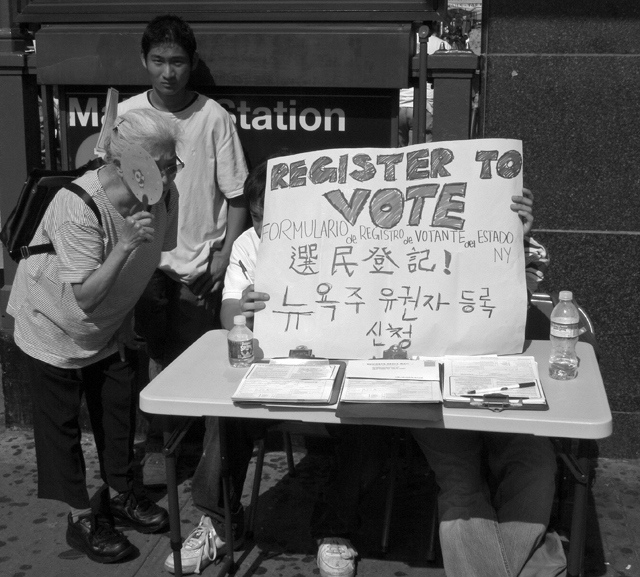 Ma Station
REGISTER TO
VOTE
FORMULARIO de REGISTRO de VOTANTE del ESTADO
NY
選民登記!
뉴욕주 유권자 등록
신청